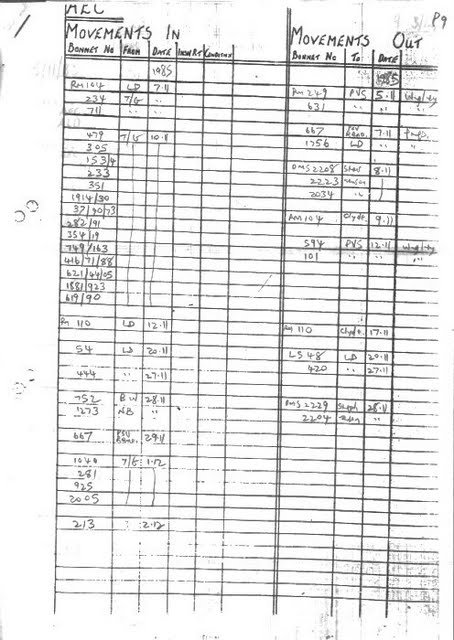 AEC
P9
MOVEMENTS IN
MOVEMENTS OUT
BONNET NO FROM DATE INSW RT CONDITION
BONNET NO TO DATE
1985
1985
RM 104 LD 7.11
234 7/G "
711 "
479 7/G 10.11
305
153/4
233
351
1914/30
37/90/73
282/91
354/19
749/163
416/71/88
621/44/05
1881/923
619/90
RM 110 LD 12.11
54 LD 20.11
444 " 27.11
752 BW 28.11
1273 NB "
667 PSV 29.11
1040 7/G 1.12
281
925
2005
213 2.12
RM 249 PVS 5.11
631 " "
667 PSV 7.11
1756 LD "
DMS 2208 8.11
2223
2034
RM 104 Clyde. 9.11
594 PVS 12.11
101 " "
RM 110 17.11
LS 48 LD 20.11
420 " 27.11
DMS 2229 28.11
2204 "